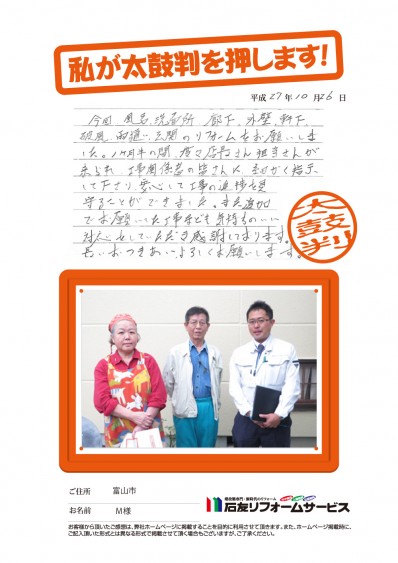 私が太鼓判を押します!
平成27年10月26日
今回 風呂、洗面所 廊下、外壁、軒下、
破風 雨樋い、玄関のリフォームをお願いしま
した。1ヶ月半の間、店長さん担当さんが
来られ、工事関係者の皆さんに、細かく指示
して下さり、安心して工事の進捗を
守ることができました。また追加
でお願いした工事なども気持ちのいい
対応をしていただき感謝しております。
長いおつきあいよろしくお願いします。
太鼓判
ご住所 富山市
お名前 M様
増改築専門・新時代のリフォーム
石友リフォームサービス
お客様から頂いたご感想は、弊社ホームページに掲載することを目的に利用させて頂きます。また、ホームページ掲載時に、
ご記入頂いた形式とは異なる形式で掲載させて頂く場合もございますが、ご了承ください。